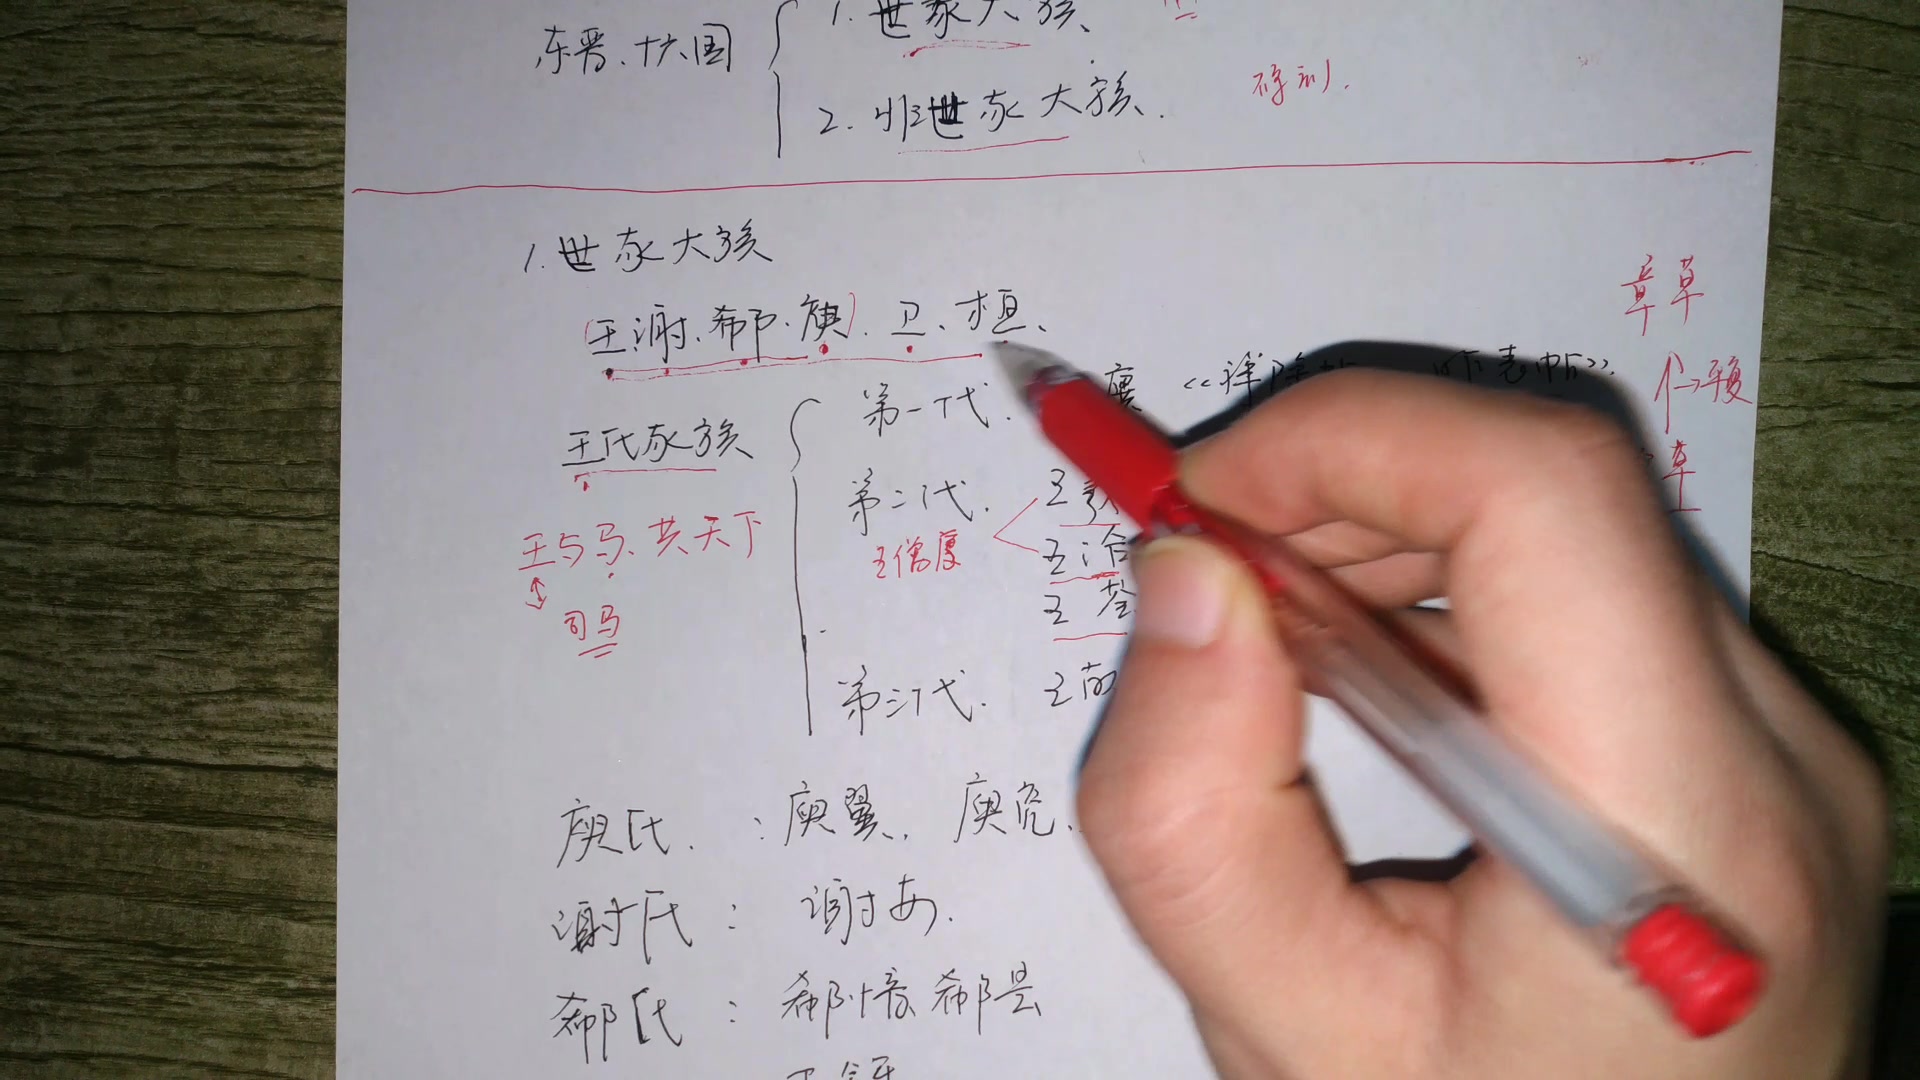 东晋、十六国
1. 世家大族、
2. 非世家大族.
碑刻.
1. 世家大族
(王.谢.郗.庾).卫.桓、
王氏家族
第一代.
廙
章草
→平复
草
第二代.
王治
王荟
王僧虔
王与马、共天下
司马
第三代.
庾氏. : 庾翼. 庾亮.
谢氏 : 谢安.
郗氏 : 郗愔 郗昙